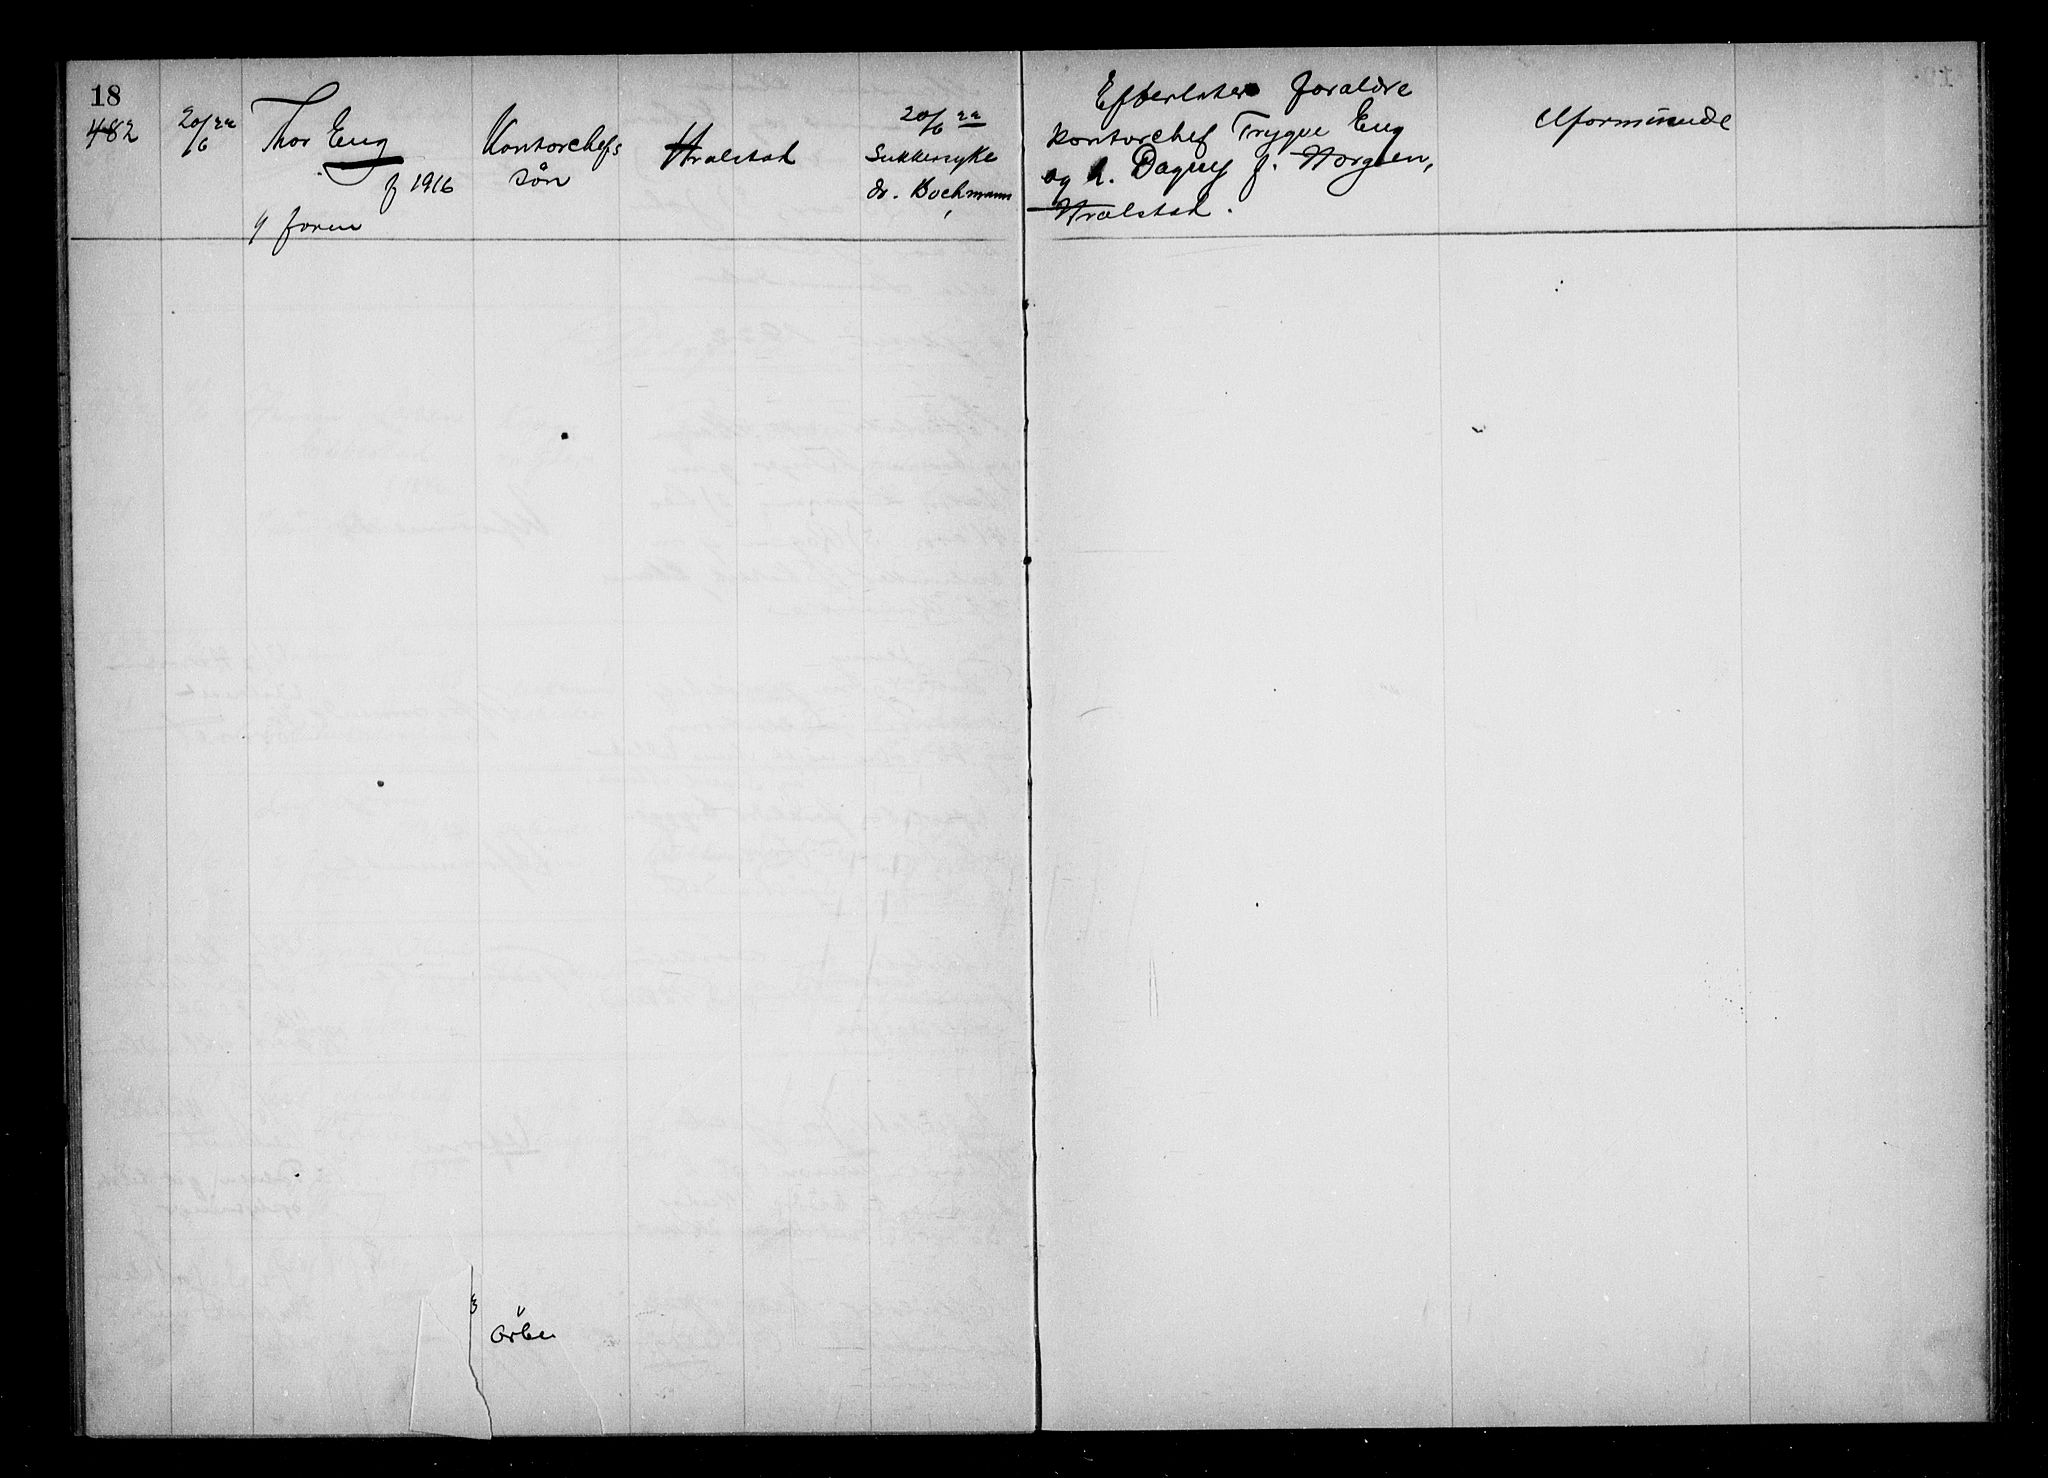 18
482
20/6 22
Thor Eng
f 1916
Kontorchefs
søn
Hvalstad
20/6 22
Sukkersyke
dr. Bochmann
Efterlater foraldre
kontorchef Trygve Eng
og h. Dagny f.
Hvalstad.
Uformuende